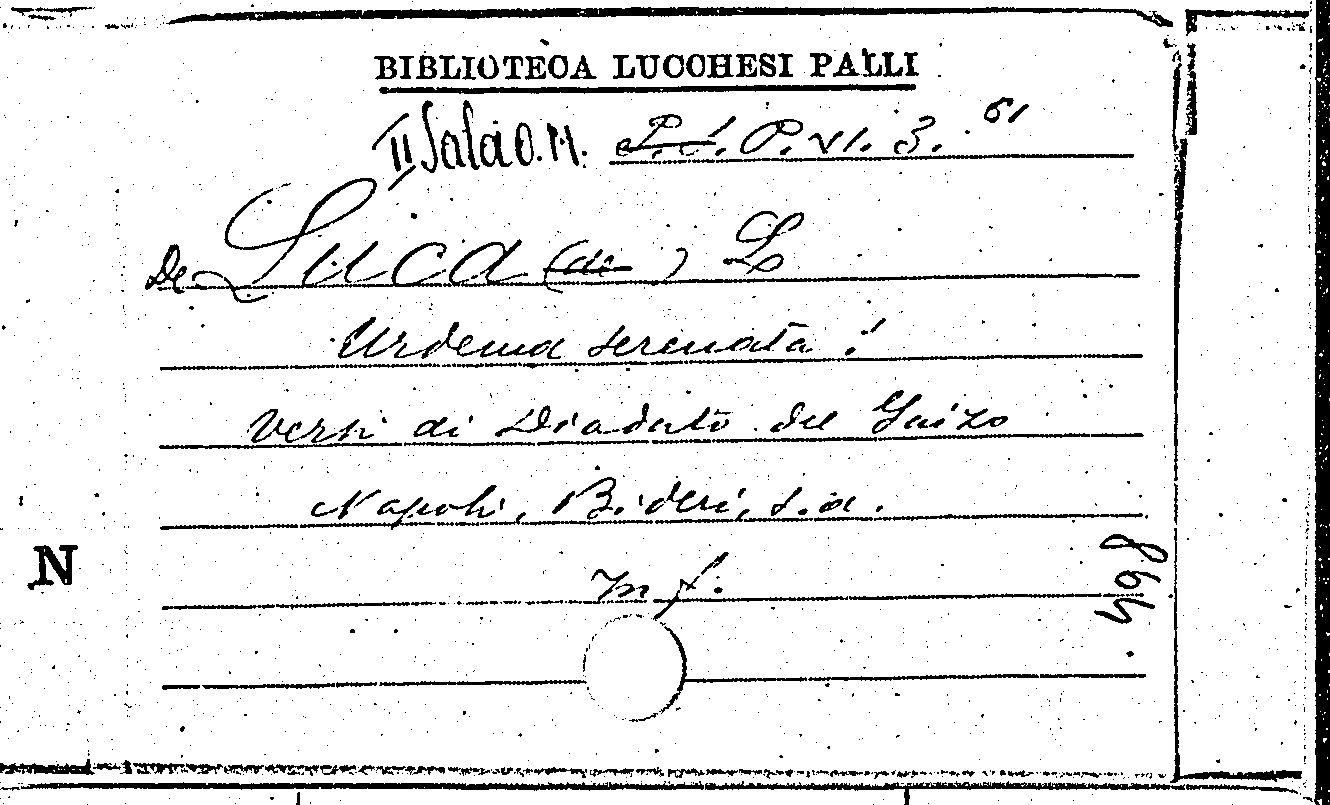 BIBLIOTECA LUCCHESI PALLI
II Sala O.M. P.I. P. VI. 3. 61
De Luca (di) L
Urdema serenata!
Versi di Diodato del Gaizo
Napoli, Bideri, s.a.
N
in f.
498